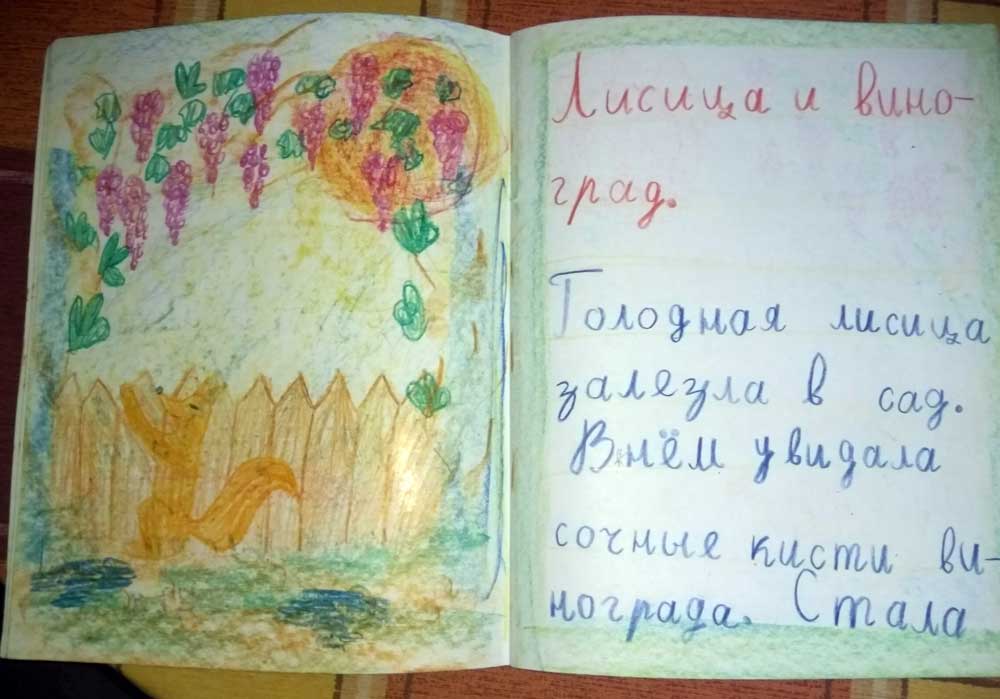 Лисица и вино-
град.
Голодная лисица
залезла в сад.
В нём увидала
сочные кисти ви-
нограда. Стала